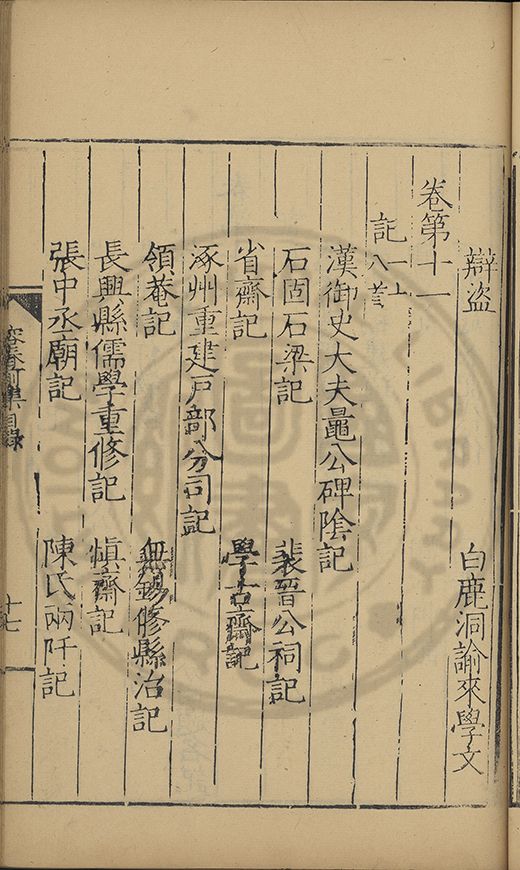 辯盜 白鹿洞諭來學文
卷第十一
記一 上
漢御史大夫鼂公碑陰記
石固石梁記 裴晉公祠記
省齋記 學古齋記
涿州重建戶部分司記
領菴記 無錫修縣治記
長興縣儒學重修記 慎齋記
張中丞廟記 陳氏兩阡記
容春前集目錄 十七